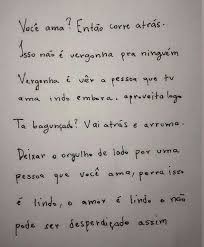 Você ama? Então corre atrás.
Isso não é vergonha pra ninguém
Vergonha é vêr a pessoa que tu
ama indo embora. aproveita logo
Ta bagunçada? Vai atrás e arruma.
Deixar o orgulho de lado por uma
pessoa que você ama, porra isso
é lindo, o amor é lindo e não
pode ser desperdiçado assim